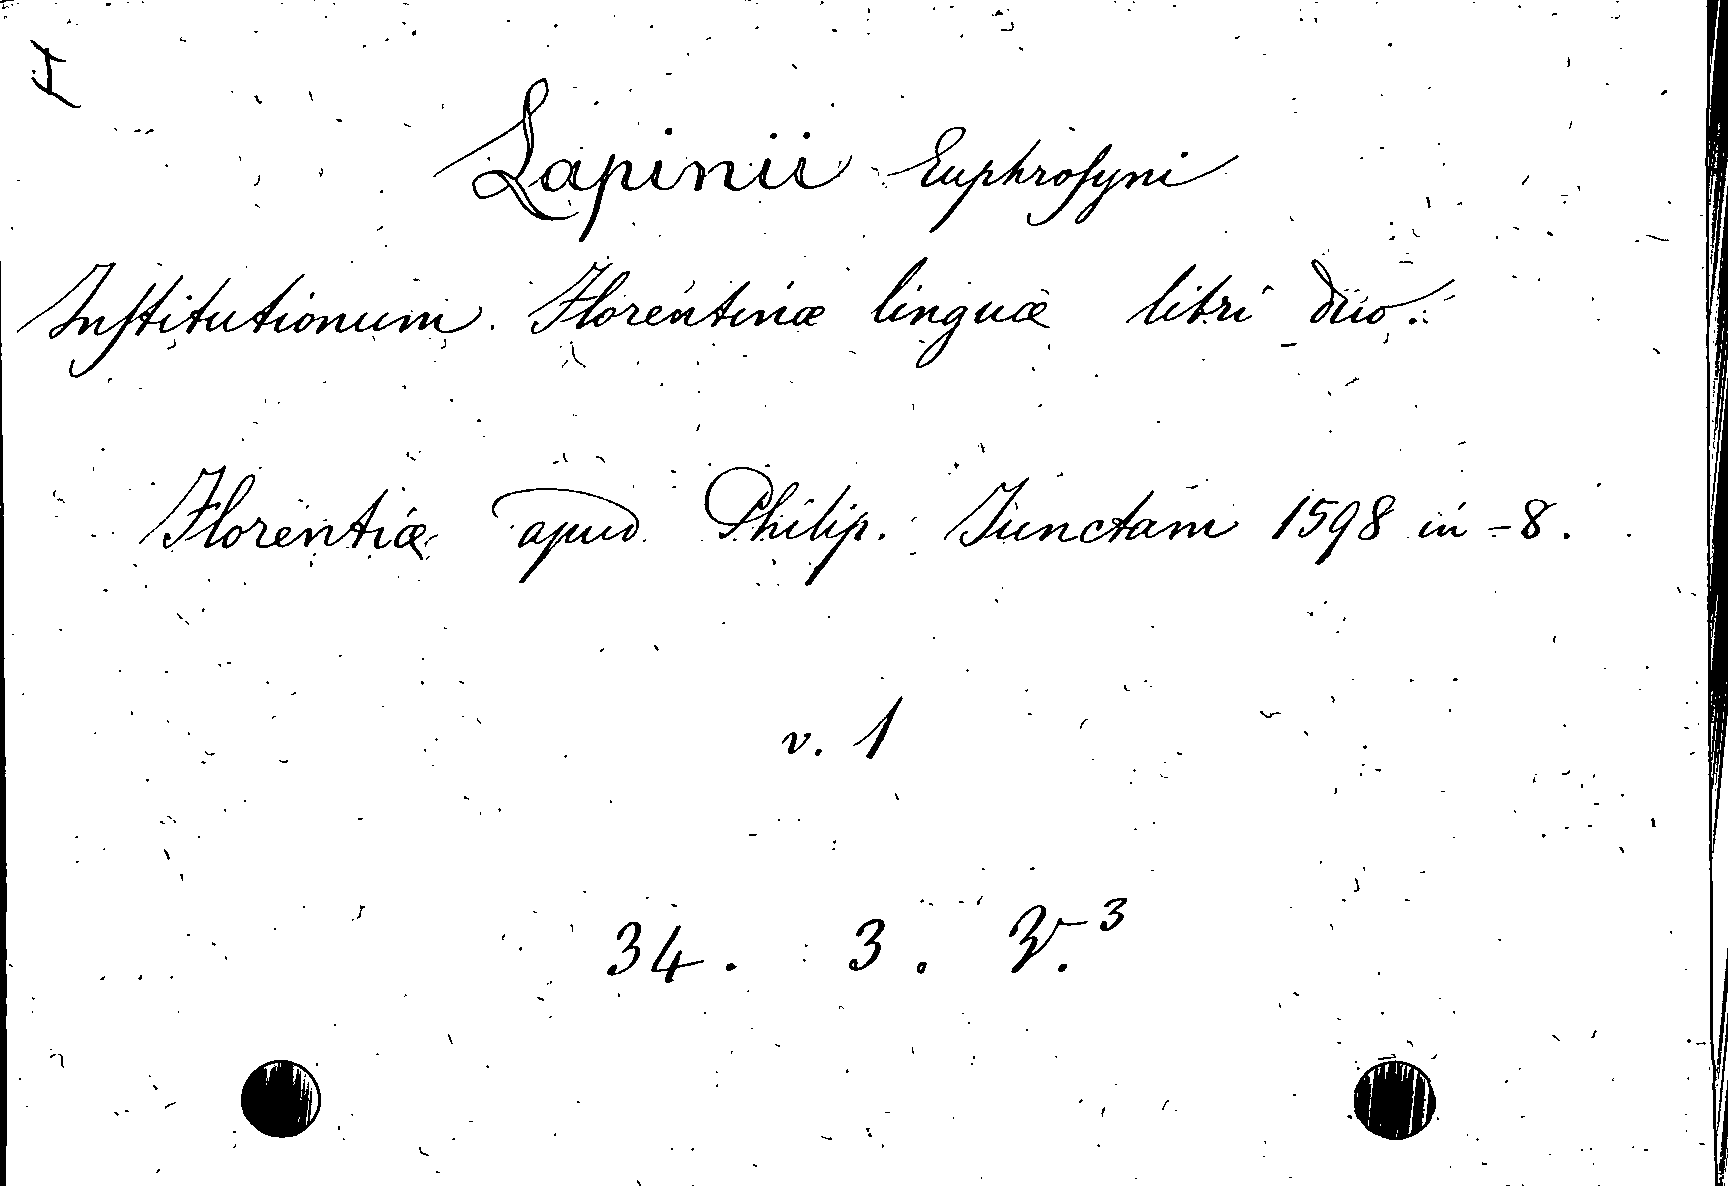 I
Lapinii Euphrosyni
Institutionum Florentinæ linguæ libri duo.
Florentiæ apud Philip. Junctam 1598 in-8.
v. 1
34. 3. V.³